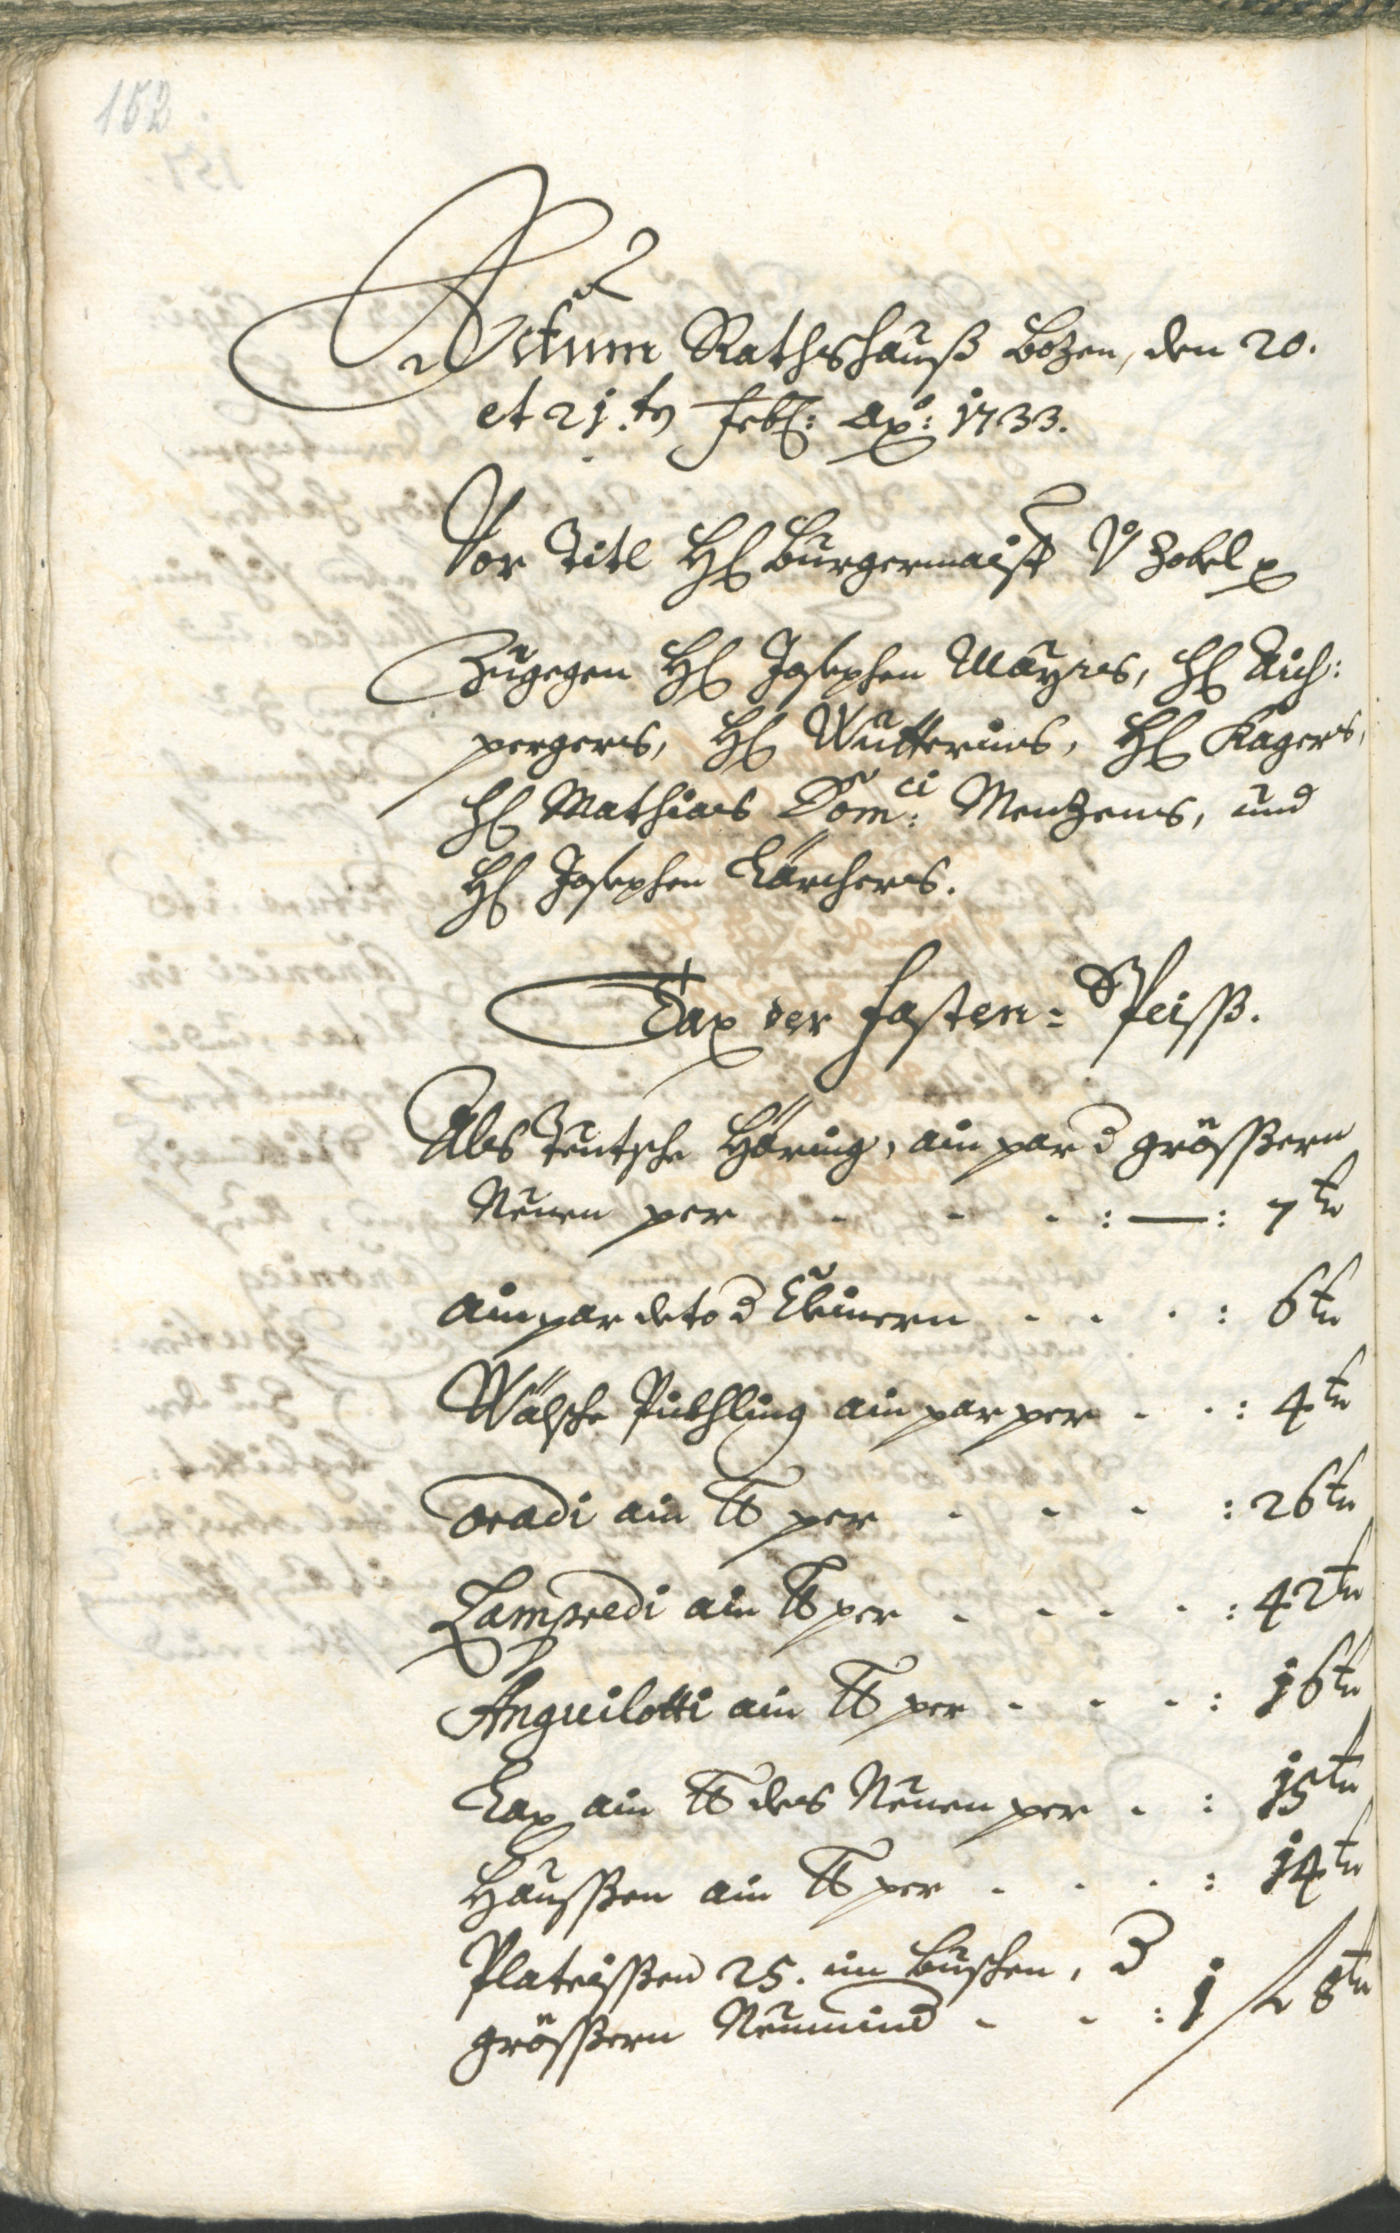 152
Actum Rathshauß Bozen, den 20.
et 21.ten Feb: ao: 1733.
Vor Titl H Burgermaister v Zobel
Zugegen H Josephen Mayrs, H Aich:
pergers, H Wutterins, H Kagers,
H Mathias Domci: Menzens, und
H Josephen Kärchers.
Tax der Fasten= Speiss.
Als Teutsche Häring, ain par d grössern
Neuen per - - - :—: 7 kr
ain par deto d Kleinern - - - : 6 kr
Wälsche Pichling ain par per - - : 4 kr
Oradi ain lb per - - - : 26 kr
Lampredi ain lb per - - - - : 42 kr
Anguilotti ain lb per - - - : 16 kr
Lax ain lb des Neuen per - : 15 kr
Haussen ain lb per - - - : 14 kr
Plateissen 25. im Buschen, d
grössern - - : 1 f 8 kr